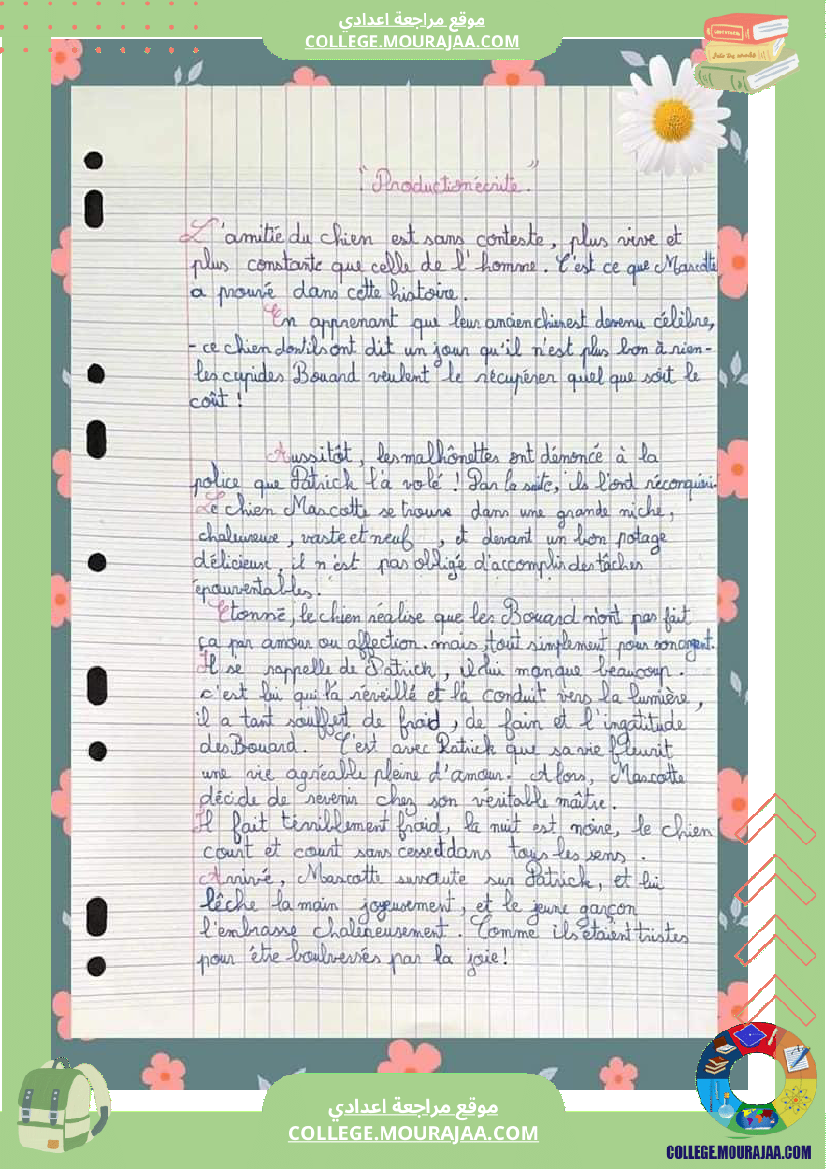 موقع مراجعة اعدادي
COLLEGE.MOURAJAA.COM
"Production écrite".
L'amitié du chien est sans conteste, plus vive et
plus constante que celle de l'homme. C'est ce que Mascotte
a prouvé dans cette histoire.
En apprenant que leur ancien chien est devenu célèbre,
- ce chien dont ils ont dit un jour qu'il n'est plus bon à rien -
les cupides Bouard veulent le récupérer quel que soit le
coût !
Aussitôt, les malhônettes ont dénoncé à la
police que Patrick l'a volé ! Par la suite, ils l'ont réconquéri.
Le chien Mascotte se trouve dans une grande niche,
chaleureuse, vaste et neuf , et devant un bon potage
délicieux, il n'est pas obligé d'accomplir des tâches
épouventables.
Etonné, le chien réalise que les Bouard n'ont pas fait
ça par amour ou affection mais, tout simplement pour son argent.
Il se rappelle de Patrick, il lui manque beaucoup.
c'est lui qui l'a réveillé et l'a conduit vers la lumière,
il a tant souffert de froid, de faim et l'ingatitude
des Bouard. C'est avec Patrick que sa vie fleurit
une vie agréable pleine d'amour. Alors, Mascotte
décide de revenir chez son véritable maître.
Il fait térriblement froid, la nuit est noire, le chien
court et court sans cesse dans tous les sens .
Arrivé, Mascotte sursaute sur Patrick, et lui
lêche la main joyeusement, et le jeune garçon
l'embrasse chaleureusement. Comme ils étaient tristes
pour être boulversés par la joie !
موقع مراجعة اعدادي
COLLEGE.MOURAJAA.COM
COLLEGE.MOURAJAA.COM